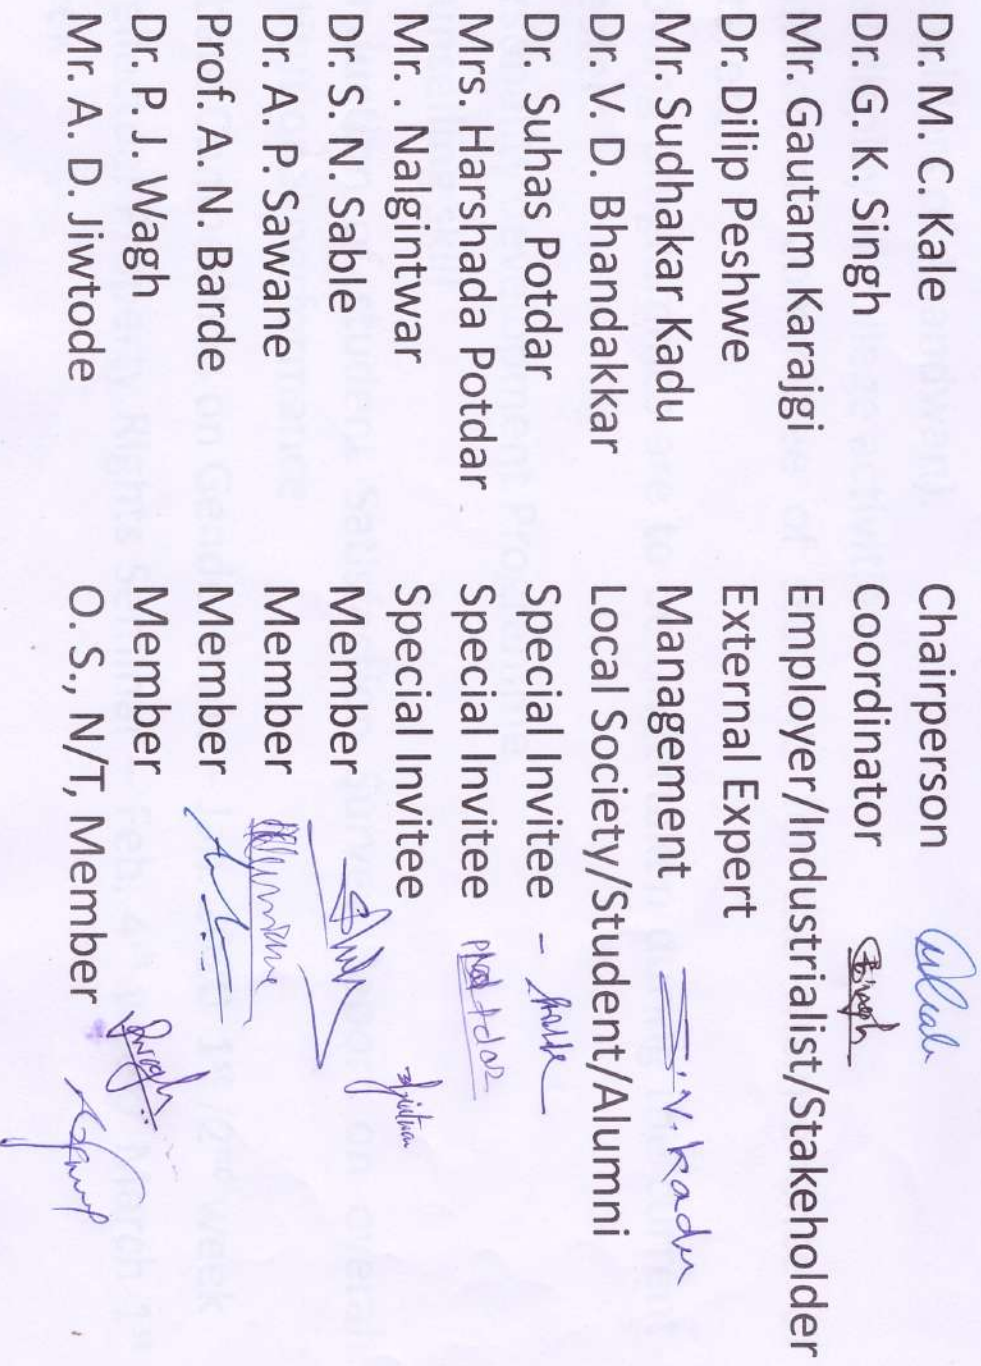 Dr. M. C. Kale Chairperson
Dr. G. K. Singh Coordinator
Mr. Gautam Karajgi Employer/Industrialist/Stakeholder
Dr. Dilip Peshwe External Expert
Mr. Sudhakar Kadu Management S.V.Kadu
Dr. V. D. Bhandakkar Local Society/Student/Alumni
Dr. Suhas Potdar Special Invitee -
Mrs. Harshada Potdar Special Invitee
Mr. . Nalgintwar Special Invitee
Dr. S. N. Sable Member
Dr. A. P. Sawane Member
Prof. A. N. Barde Member
Dr. P. J. Wagh Member
Mr. A. D. Jiwtode O. S., N/T, Member